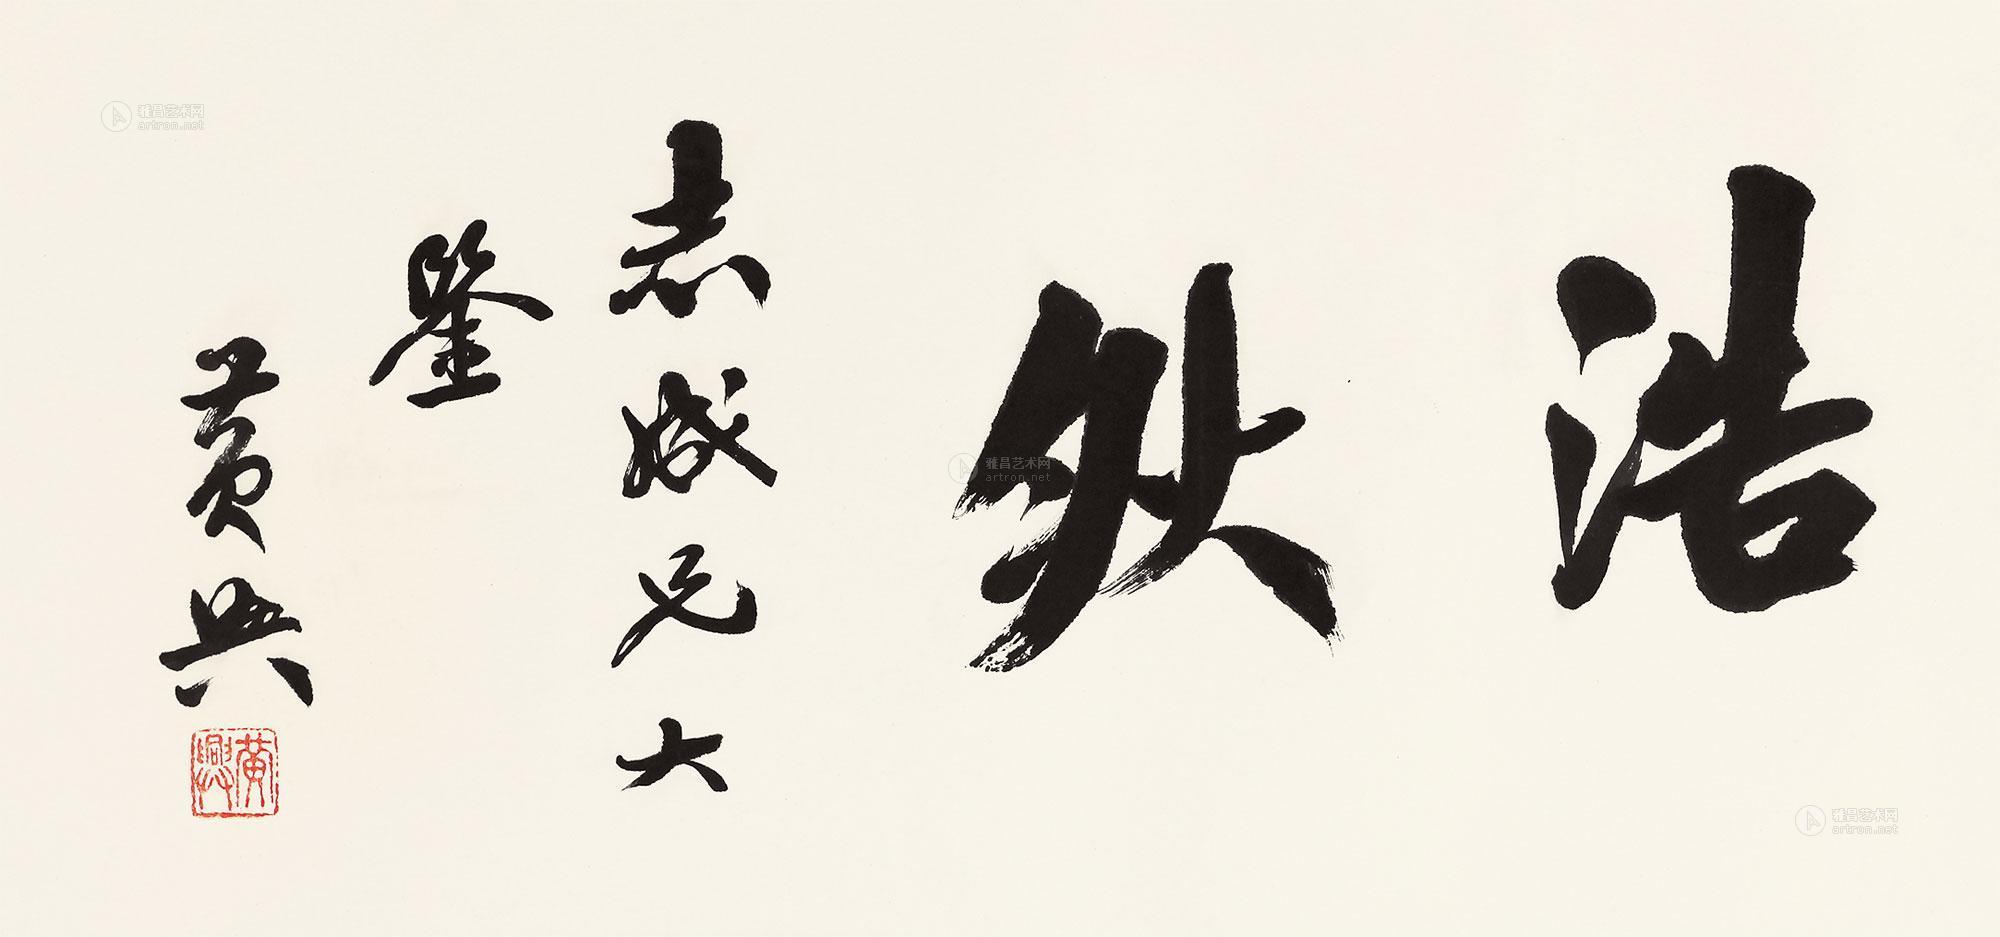 浩然
志成兄大
鉴
黄兴
黄興
雅昌艺术网
artron.net
雅昌艺术网
artron.net
雅昌艺术网
artron.net